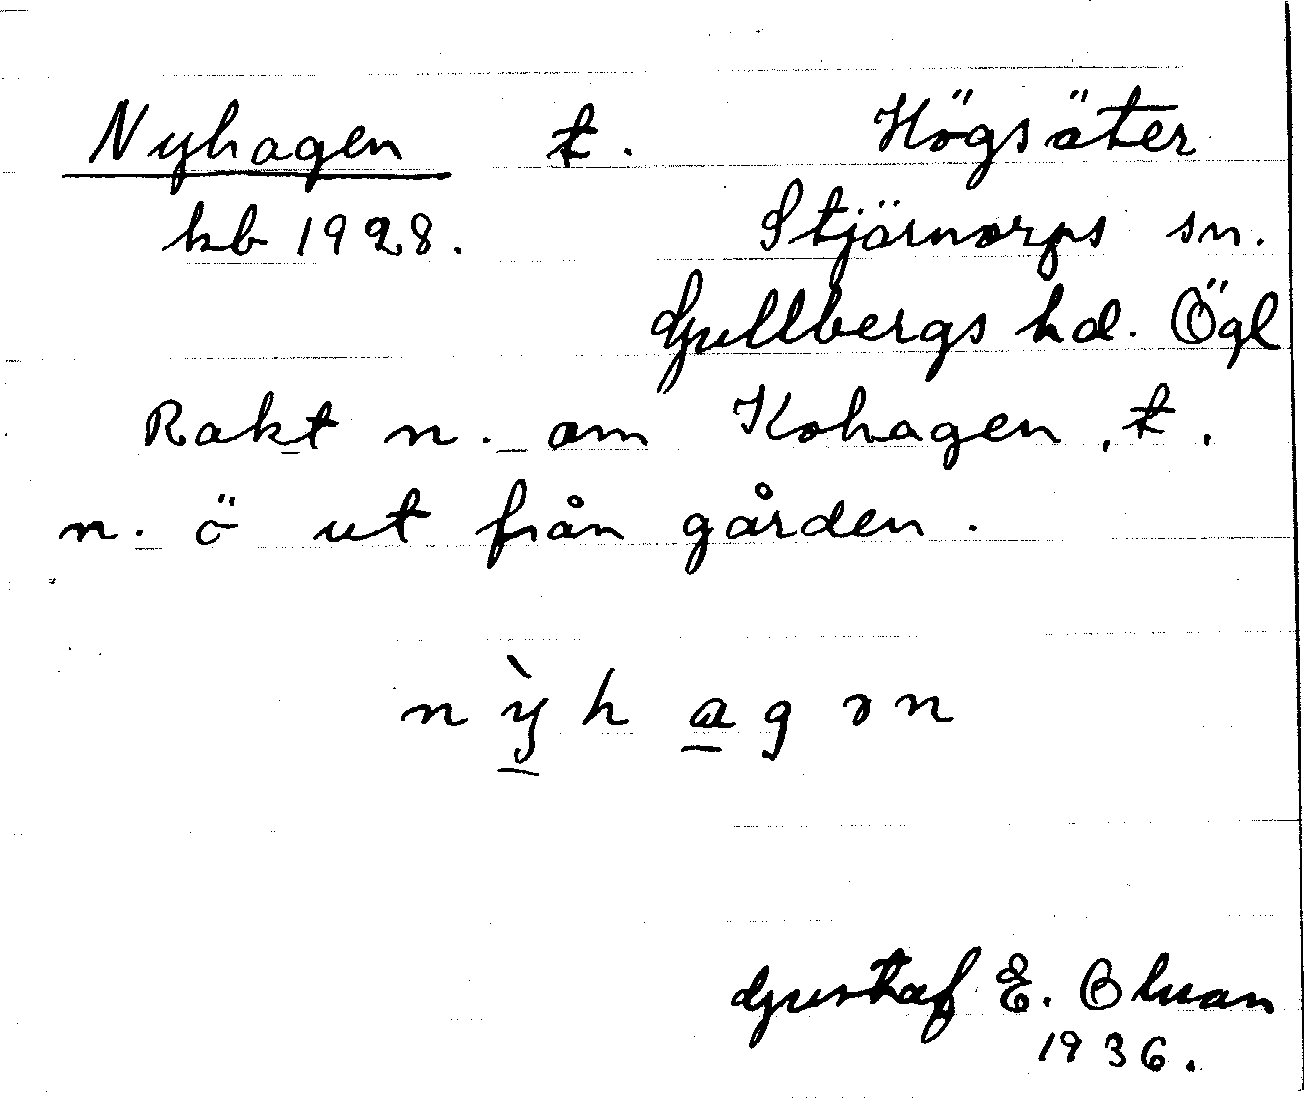 Nyhagen t. Högsäter
kb 1928. Stjärnorps sn.
Gullbergs hd. Ögl
Rakt n. om Kohagen, t.
n. ö ut från gården.
nỳhagən
Gustaf E. Olsson
1936.